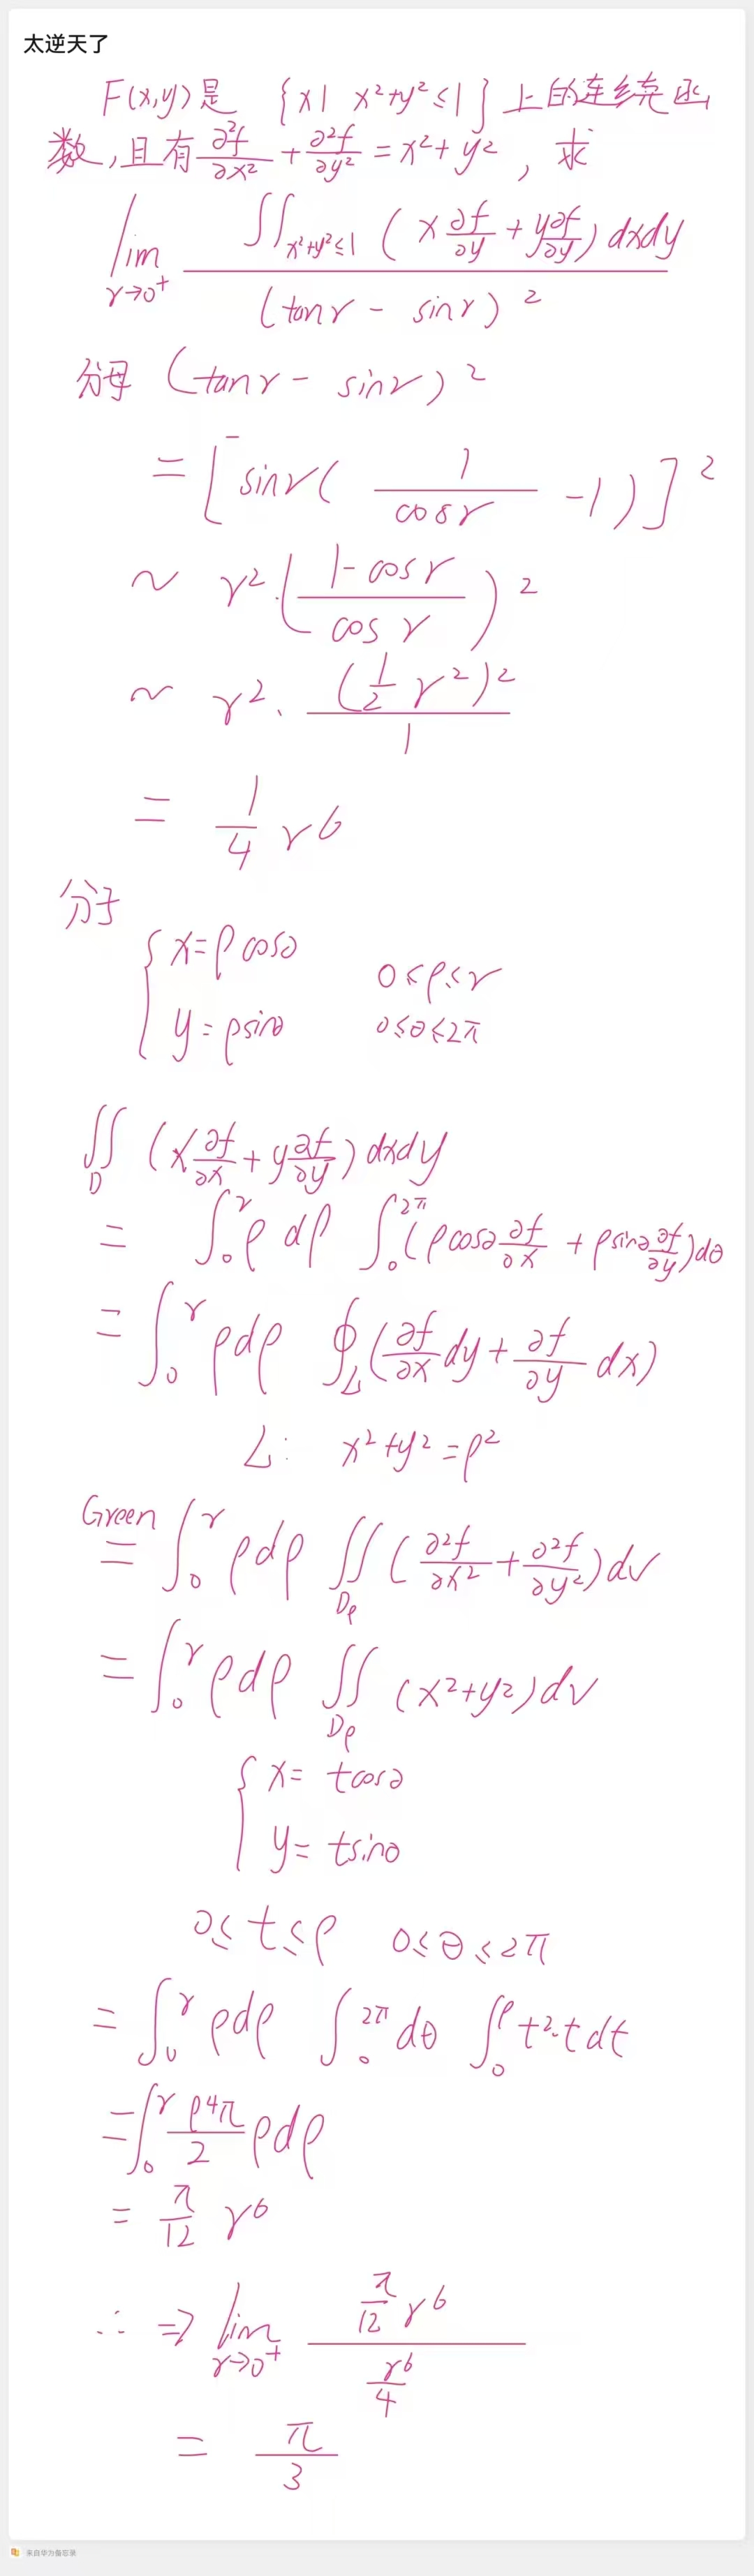 太逆天了
F(x,y)是 {x| x²+y²≤1} 上的连续函
数,且有 ∂²f/∂x² + ∂²f/∂y² = x²+y² , 求
lim r→0⁺ ∬x²+y²≤1 (x ∂f/∂y + y ∂f/∂y) dxdy / (tanr - sinr)²
分母 (tanr - sinr)²
= [sinr( 1/cosr -1)]²
~ r²·( (1-cosr)/cosr )²
~ r²· (½ r²)²/1
= 1/4 r⁶
分子
{ x=ρcosθ 0≤ρ≤r
y=ρsinθ 0≤θ≤2π
∬D (x ∂f/∂x + y ∂f/∂y) dxdy
= ∫₀ʳ ρdρ ∫₀²π (ρcosθ ∂f/∂x + ρsinθ ∂f/∂y)dθ
= ∫₀ʳ ρdρ ∮L (∂f/∂x dy + ∂f/∂y dx)
L: x²+y²=ρ²
Green
= ∫₀ʳ ρdρ ∬Dρ (∂²f/∂x² + ∂²f/∂y²)dv
= ∫₀ʳ ρdρ ∬Dρ (x²+y²)dv
{ x= tcosθ
y= tsinθ
0≤t≤ρ 0≤θ≤2π
= ∫₀ʳ ρdρ ∫₀²π dθ ∫₀ρ t²·t dt
= ∫₀ʳ ρ⁴π/2 ρdρ
= π/12 r⁶
∴ ⇒ lim r→0⁺ (π/12 r⁶)/(r⁶/4)
= π/3
来自华为备忘录